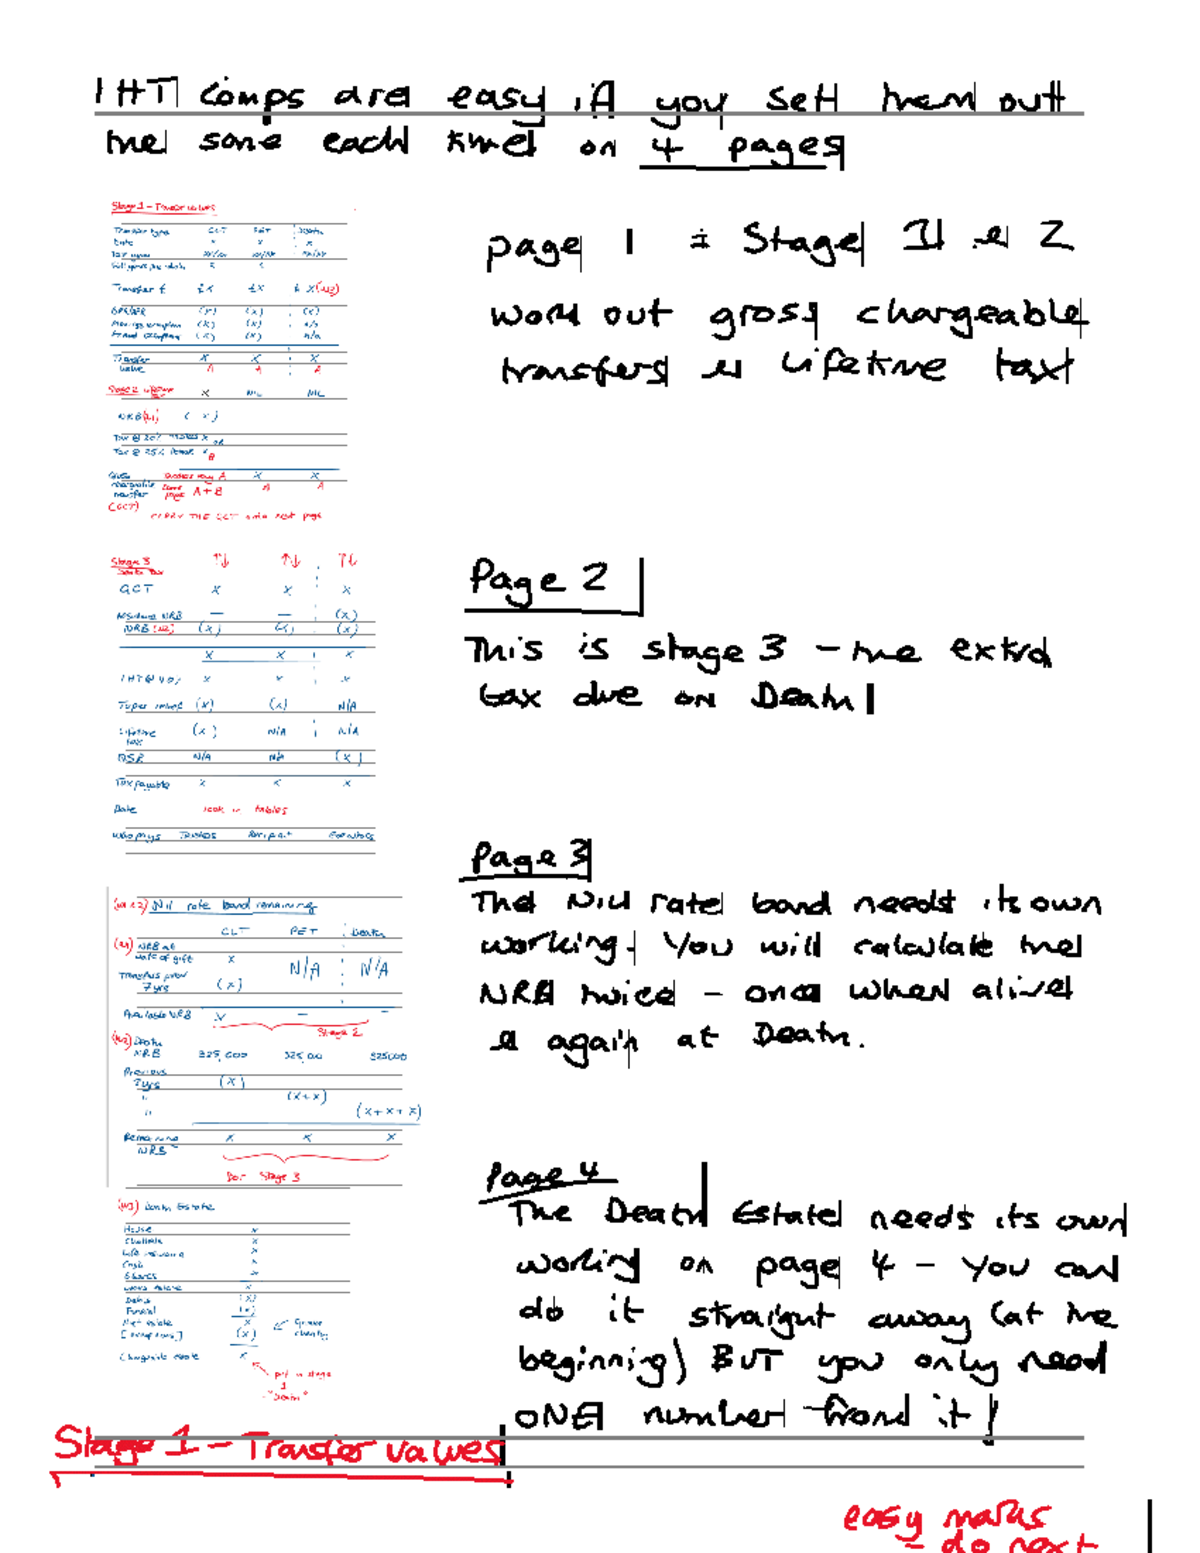 IHT comps are easy if you set them out
the same each time on 4 pages
Stage 1 - Transfer values
Transfer type CLT PET Death
Date x x x
Transfer £ £x £x £x (W3)
(x) (x) (x)
(x) (x) n/a
(x) (x) n/a
Transfer x x x
value A A A
Stage 2 x NIL NIL
NRB (W1) (x)
Tax @ 20% x or
Tax @ 25% x B
Gross A x x
chargeable A + B A A
transfer
(GCT)
CARRY THE GCT onto next page
page 1 = Stage 1 & 2
work out gross chargeable
transfers & lifetime tax
Stage 3
Death tax
GCT x x x
Residence NRB — — (x)
NRB (W2) (x) (x) (x)
x x x
IHT @ 40% x x x
Taper relief (x) (x) N/A
Lifetime (x) N/A N/A
tax
QSR N/A N/A (x)
Tax payable x x x
Date look in tables
Who pays Trustees Recipient Executors
Page 2
This is stage 3 - the extra
tax due on Death
Page 3
The Nil rate band needs its own
working. You will calculate the
NRB twice - once when alive
& again at Death.
(W1 & 2) Nil rate band remaining
CLT PET Death
(W1) NRB at
date of gift x N/A N/A
Transfers prev
7yrs (x)
Available NRB x — —
Stage 2
(W2) Death
NRB 325,000 325,000 325000
Previous
7yrs (x)
" (x+x)
" (x+x+x)
Remaining x x x
NRB
For Stage 3
Page 4
The Death Estate needs its own
working on page 4 - You can
do it straight away (at the
beginning) BUT you only need
ONE number from it!
(W3) Death Estate
House x
Chattels x
Life insurance x
Cash x
Shares x
x
Debts (x)
Funeral (x)
Net estate x
[exemptions] (x) Spouse
charity
Chargeable estate x
put in stage
1
"Death"
Stage 1 - Transfer values
easy marks
- do next